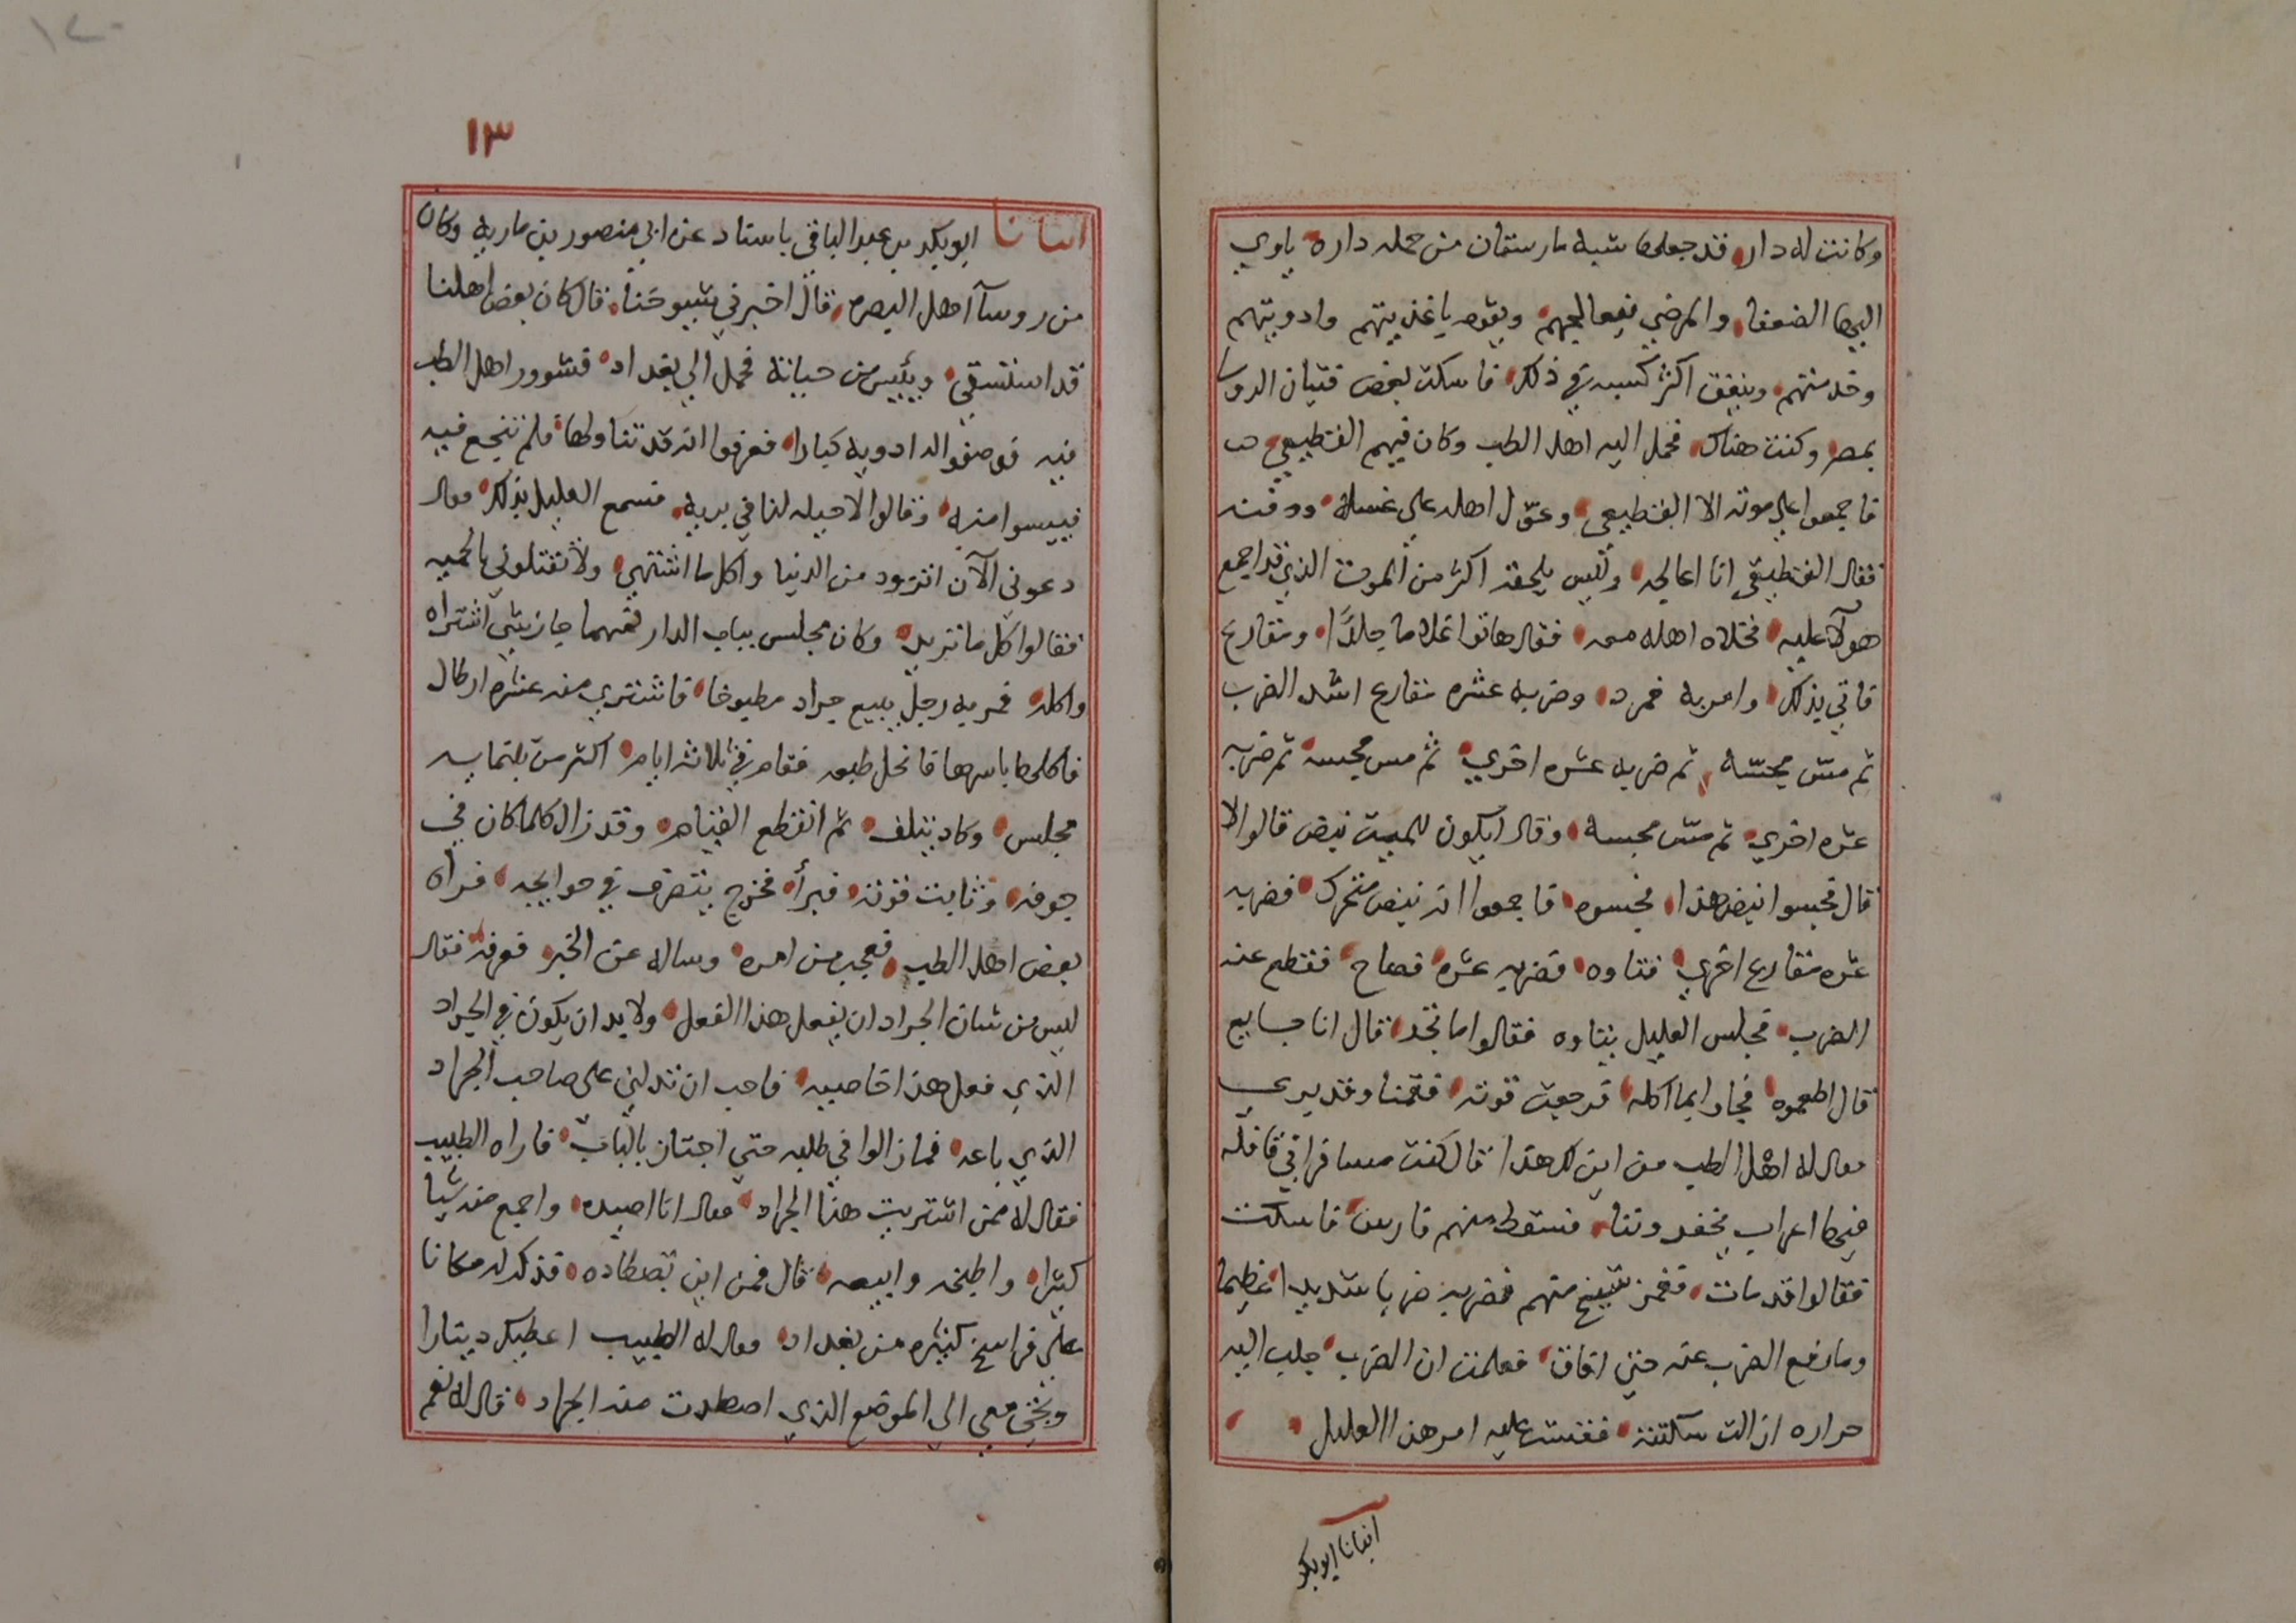 وكانت له دار قد جعلها شبه مارستان من جمله داره ياوي
اليها الضعفا والمرضي فيعالجهم ويقوم باغذيتهم وادويتهم
وخدمتهم وينفق اكثر كسبه في ذلك فاسكت بعض فتيان الروسا
بمصر وكنت هناك فحمل اليه اهل الطب وكان فيهم القطيعي
فاجمعوا علي موته الا القطيعي وعول اهله علي غسله ودفنه
فقال القطيعي انا اعالجه وليس يلحقه اكثر من الموت الذي قد اجمع
هولآ عليه فخلاه اهله معه فقال هاتوا غلاما جلدًا ومقارع
فاتي بذلك وامر به فمد وضربه عشره مقارع اشد الضرب
ثم مس مجسّه ثم ضربه عشره اخري ثم مس مجسه ثم ضربه
عشره اخري ثم مس مجسه وقال ايكون للميت نبض قالوا لا
قال فجسوا نبض هذا فجسوه فاجمعوا انه نبض متحرك فضربه
عشره مقارع اخري فتاوه فضربه عشره فصاح فقطع عنه
الضرب فجلس العليل يتاوه فقالوا ما تجد قال انا جايع
قال اطعموه فجاوا بما اكله فرجعت قوته فقمنا وقد بري
فقال له اهل الطب من اين لك هذا قال كنت مسافرا في قافله
فيها اعراب يخفرونا فسقط منهم فارس فاسكت
فقالوا قد مات فعمد شيخ منهم فضربه ضربا شديدا عظيما
وما رفع الضرب عنه حتي افاق فعلمت ان الضرب جلب اليه
حراره ازالت سكتته فقست عليه امر هذا العليل
انبانا ابو بكر
١٣
انبانا ابو بكر بن عبد الباقي باسناد عن ابي منصور بن ماريه وكان
من روسآ اهل البصره قال اخبرني شيوخنا قال كان بعض اهلنا
قد استسقي ويئس من حياته فحمل الي بغداد فشوور اهل الطب
فيه فوصفوا له ادويه كبارا فعرفوا انه قد تناولها فلم تنجع فيه
فييسوا منه وقالوا لا حيله لنا في بريه فسمع العليل بذلك فقال
دعوني الآن اتزود من الدنيا واكل ما اشتهي ولا تقتلوني بالحميه
فقالوا كل ما تريد وكان مجلس بباب الدار فمهما جاز بشي اشتراه
واكله فمر به رجل يبيع جراد مطبوخا فاشتري منه عشره ارطال
فاكلها باسرها فانحل طبعه فقام في ثلاثه ايام اكثر من ثلثمايه
مجلس وكاد يتلف ثم انقطع القيام وقد زال كلما كان في
جوفه وثابت قوته فبرأ فخرج يتصرف في حوايجه فراه
بعض اهل الطب فعجب من امره وساله عن الخبر فعرفه فقال
ليس من شان الجراد ان يفعل هذا الفعل ولا بد ان يكون في الجراد
الذي فعل هذا خاصيه فاحب ان تدلني على صاحب الجراد
الذي باعه فمازالوا في طلبه حتي اجتاز بالباب فاراه الطبيب
فقال له ممن اشتريت هذا الجراد فقال انا اصيده واجمع منه شيا
كثيرا واطبخه وابيعه قال فمن اين تصطاده فذكر له مكانا
علي فراسخ كثيره من بغداد فقال له الطبيب اعطيك دينارا
وتجي معي الي الموضع الذي اصطدت منه الجراد قال له نعم